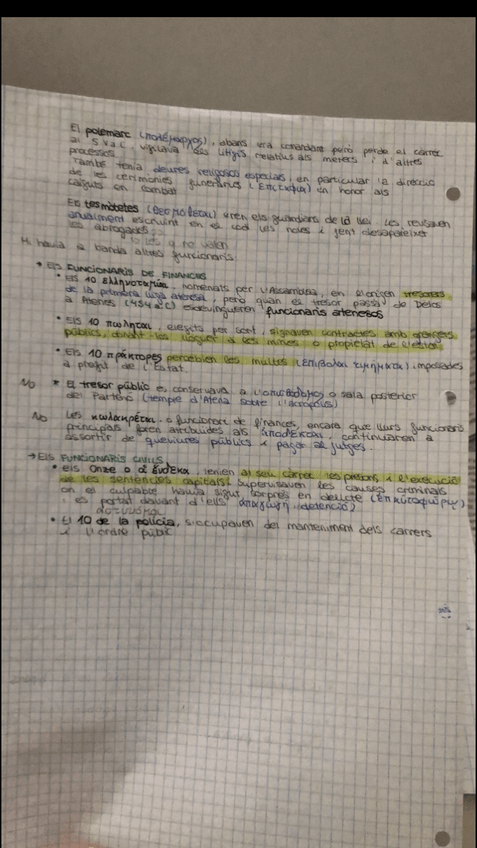 El polemarc (πολέμαρχος), abans era comandant però perdé el càrrec
al S.V a.C., vigilava els litigis relatius als metecs i d'altres
processos.
També tenia deures religiosos especials, en particular la direcció
de les cerimònies funeràries (ἐπιτάφια) en honor als
caiguts en combat
Els tesmotetes (θεσμοθέται) eren els guardians de la llei. Les revisaven
anualment escruint en el codi les noves i fent desaparèixer
les abrogades.
Hi havia a banda altres funcionaris.
• Els FUNCIONARIS DE FINANCES
• Els 10 ἑλληνοταμίαι, nomenats per l'Assemblea, en l'origen tresorers
de la primera lliga atenesa, però quan el tresor passà de Delos
a Atenes (454 a.C) esdevingueren funcionaris atenesos
• Els 10 πωληταί, elegits per sort, signaven contractes amb
públics, donant-los lloguer a les mines o propietat de l'estat
• Els 10 πράκτορες percebien les multes (ἐπιβολαί τιμήματα), imposades
a profit de l'Estat.
No • El tresor públic es conservava a l'ὀπισθόδομος o sala posterior
del Partenó (temple d'Atena sobre l'acròpolis)
No Les κωλακρέται o funcionari de finances, encara que llurs funcions
principals foren atribuïdes als ἀποδέκται, continuaren a
assortir de queviures públics i pagar als jutges.
→ Els FUNCIONARIS CIVILS
• els Onze o οἱ ἕνδεκα, tenien al seu càrrec les presons i l'execució
de les sentències capitals. Supervisaven les causes criminals
on el culpable havia sigut sorprès en delicte (ἐπ' αὐτοφώρῳ)
i és portat davant d'ells (ἀπαγωγή, detenció).
• El 10 de la policia, s'ocupaven del manteniment dels carrers
i l'ordre públic